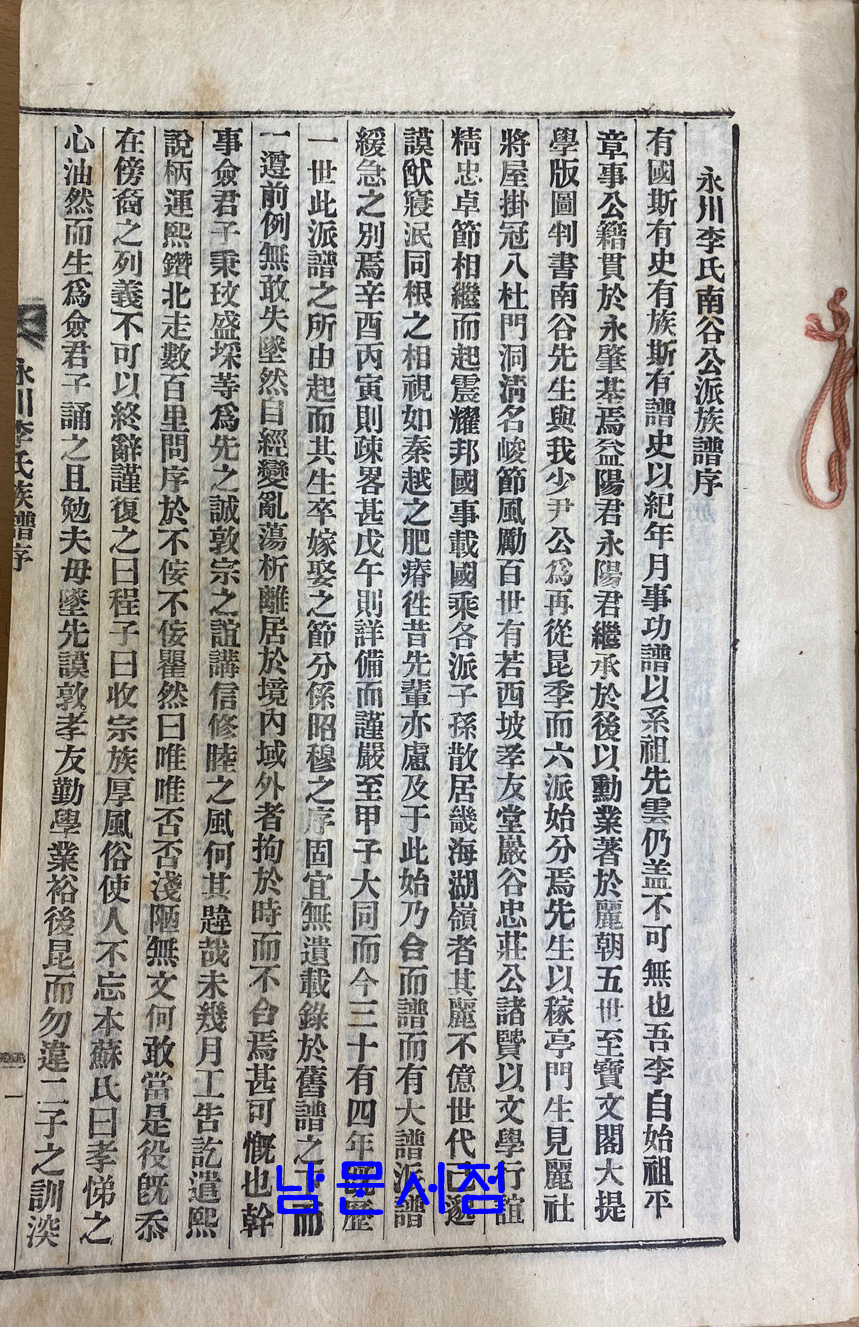 永川李氏南谷公派族譜序
有國斯有史有族斯有譜史以紀年月事功譜以系祖先雲仍盖不可無也吾李自始祖平
章事公籍貫於永肇基焉益陽君永陽君繼承於後以勳業著於麗朝五世至寶文閣大提
學版圖判書南谷先生與我少尹公爲再從昆季而六派始分焉先生以稼亭門生見麗社
將屋掛冠入杜門洞淸名峻節風勵百世有若西坡孝友堂巖谷忠莊公諸賢以文學行誼
精忠卓節相繼而起震耀邦國事載國乘各派子孫散居畿海湖嶺者其麗不億世代已遞
謨猷寢泯同根之相視如秦越之肥瘠徃昔先輩亦慮及于此始乃合而譜而有大譜派譜
緩急之別焉辛酉丙寅則疎畧甚戊午則詳備而謹嚴至甲子大同而今三十有四年旣歷
一世此派譜之所由起而其生卒嫁娶之節分係昭穆之序固宜無遺載錄於舊譜之下而
一遵前例無敢失墜然自經變亂蕩析離居於境內域外者拘於時而不合焉甚可慨也幹
事僉君子秉玟盛埰等爲先之誠敦宗之誼講信修睦之風何其韙哉未幾月工告訖遣熙
說柄運熙鑽北走數百里問序於不侫不侫瞿然曰唯唯否否淺陋無文何敢當是役旣忝
在傍裔之列義不可以終辭謹復之曰程子曰收宗族厚風俗使人不忘本蘇氏曰孝悌之
心油然而生爲僉君子誦之且勉夫毋墜先謨敦孝友勤學業裕後昆而勿違二子之訓深
永川李氏族譜序
一
남문서점